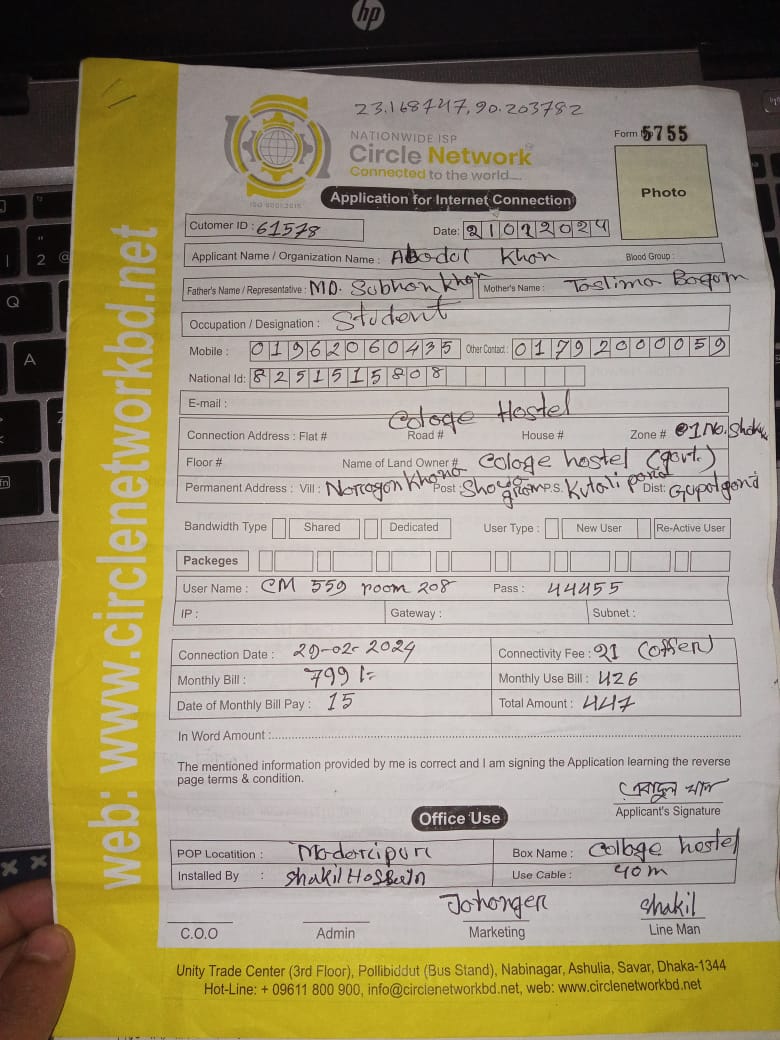 hp
23.168747,90.203782
NATIONWIDE ISP
Form 5755
Circle Network
Connected to the world....
ISO 9001:2015
Photo
Application for Internet Connection
Cutomer ID : 61578
Date: 21022024
Applicant Name / Organization Name : Abodul Khan Blood Group :
Father's Name / Representative : MD. Subhan Khan Mother's Name : Taslima Bagom
Occupation / Designation : Student
Mobile : 01962060435 Other Contact : 01792000059
National Id: 8251515808
E-mail :
Cologe Hostel
Connection Address : Flat # Road # House # Zone # 01 No. Shoku
Floor # Name of Land Owner # Cologe hostel (govt.)
Permanent Address : Vill : Narragon Khana Post : P.S. Kutali para Dist: Gupalgond
Bandwidth Type Shared Dedicated User Type : New User Re-Active User
Packeges
User Name : CM 559 room 208 Pass : 44455
IP : Gateway : Subnet :
Connection Date : 20-02-2024 Connectivity Fee : 21 (offer)
Monthly Bill : 799/= Monthly Use Bill : 426
Date of Monthly Bill Pay : 15 Total Amount : 447
In Word Amount :
The mentioned information provided by me is correct and I am signing the Application learning the reverse
page terms & condition.
Applicant's Signature
Office Use
POP Locatition : Madaripur Box Name : Collage hostel
Installed By : Shakil Hossein Use Cable : 40m
Jahanger Shakil
C.O.O Admin Marketing Line Man
Unity Trade Center (3rd Floor), Pollibiddut (Bus Stand), Nabinagar, Ashulia, Savar, Dhaka-1344
Hot-Line: + 09611 800 900, info@circlenetworkbd.net, web: www.circlenetworkbd.net
web: www.circlenetworkbd.net